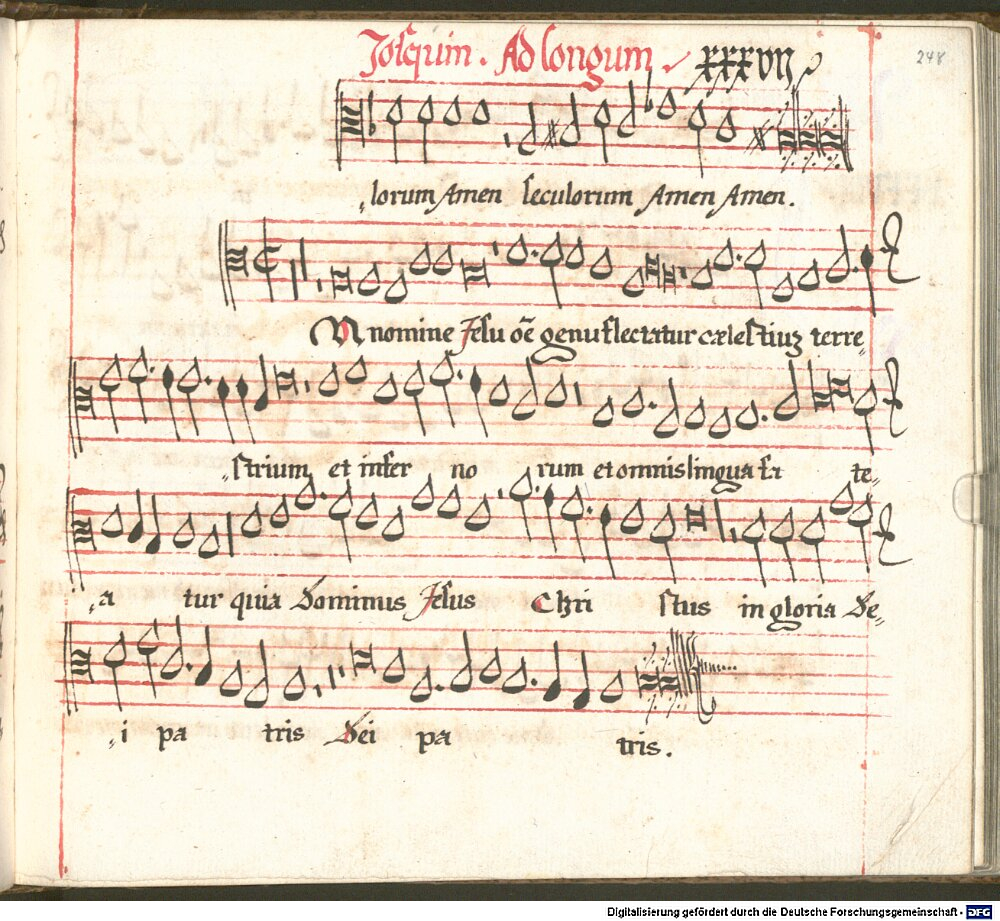 Josquin. Ad longum xxxvii
248
lorum Amen seculorum Amen Amen.
In nomine Jesu oē genu flectatur cælestiuʒ terre-
strium et infer no rum et omnis lingua fa te-
a tur quia Dominus Jesus Chri stus in gloria De-
i pa tris Dei pa tris.
Digitalisierung gefördert durch die Deutsche Forschungsgemeinschaft - DFG